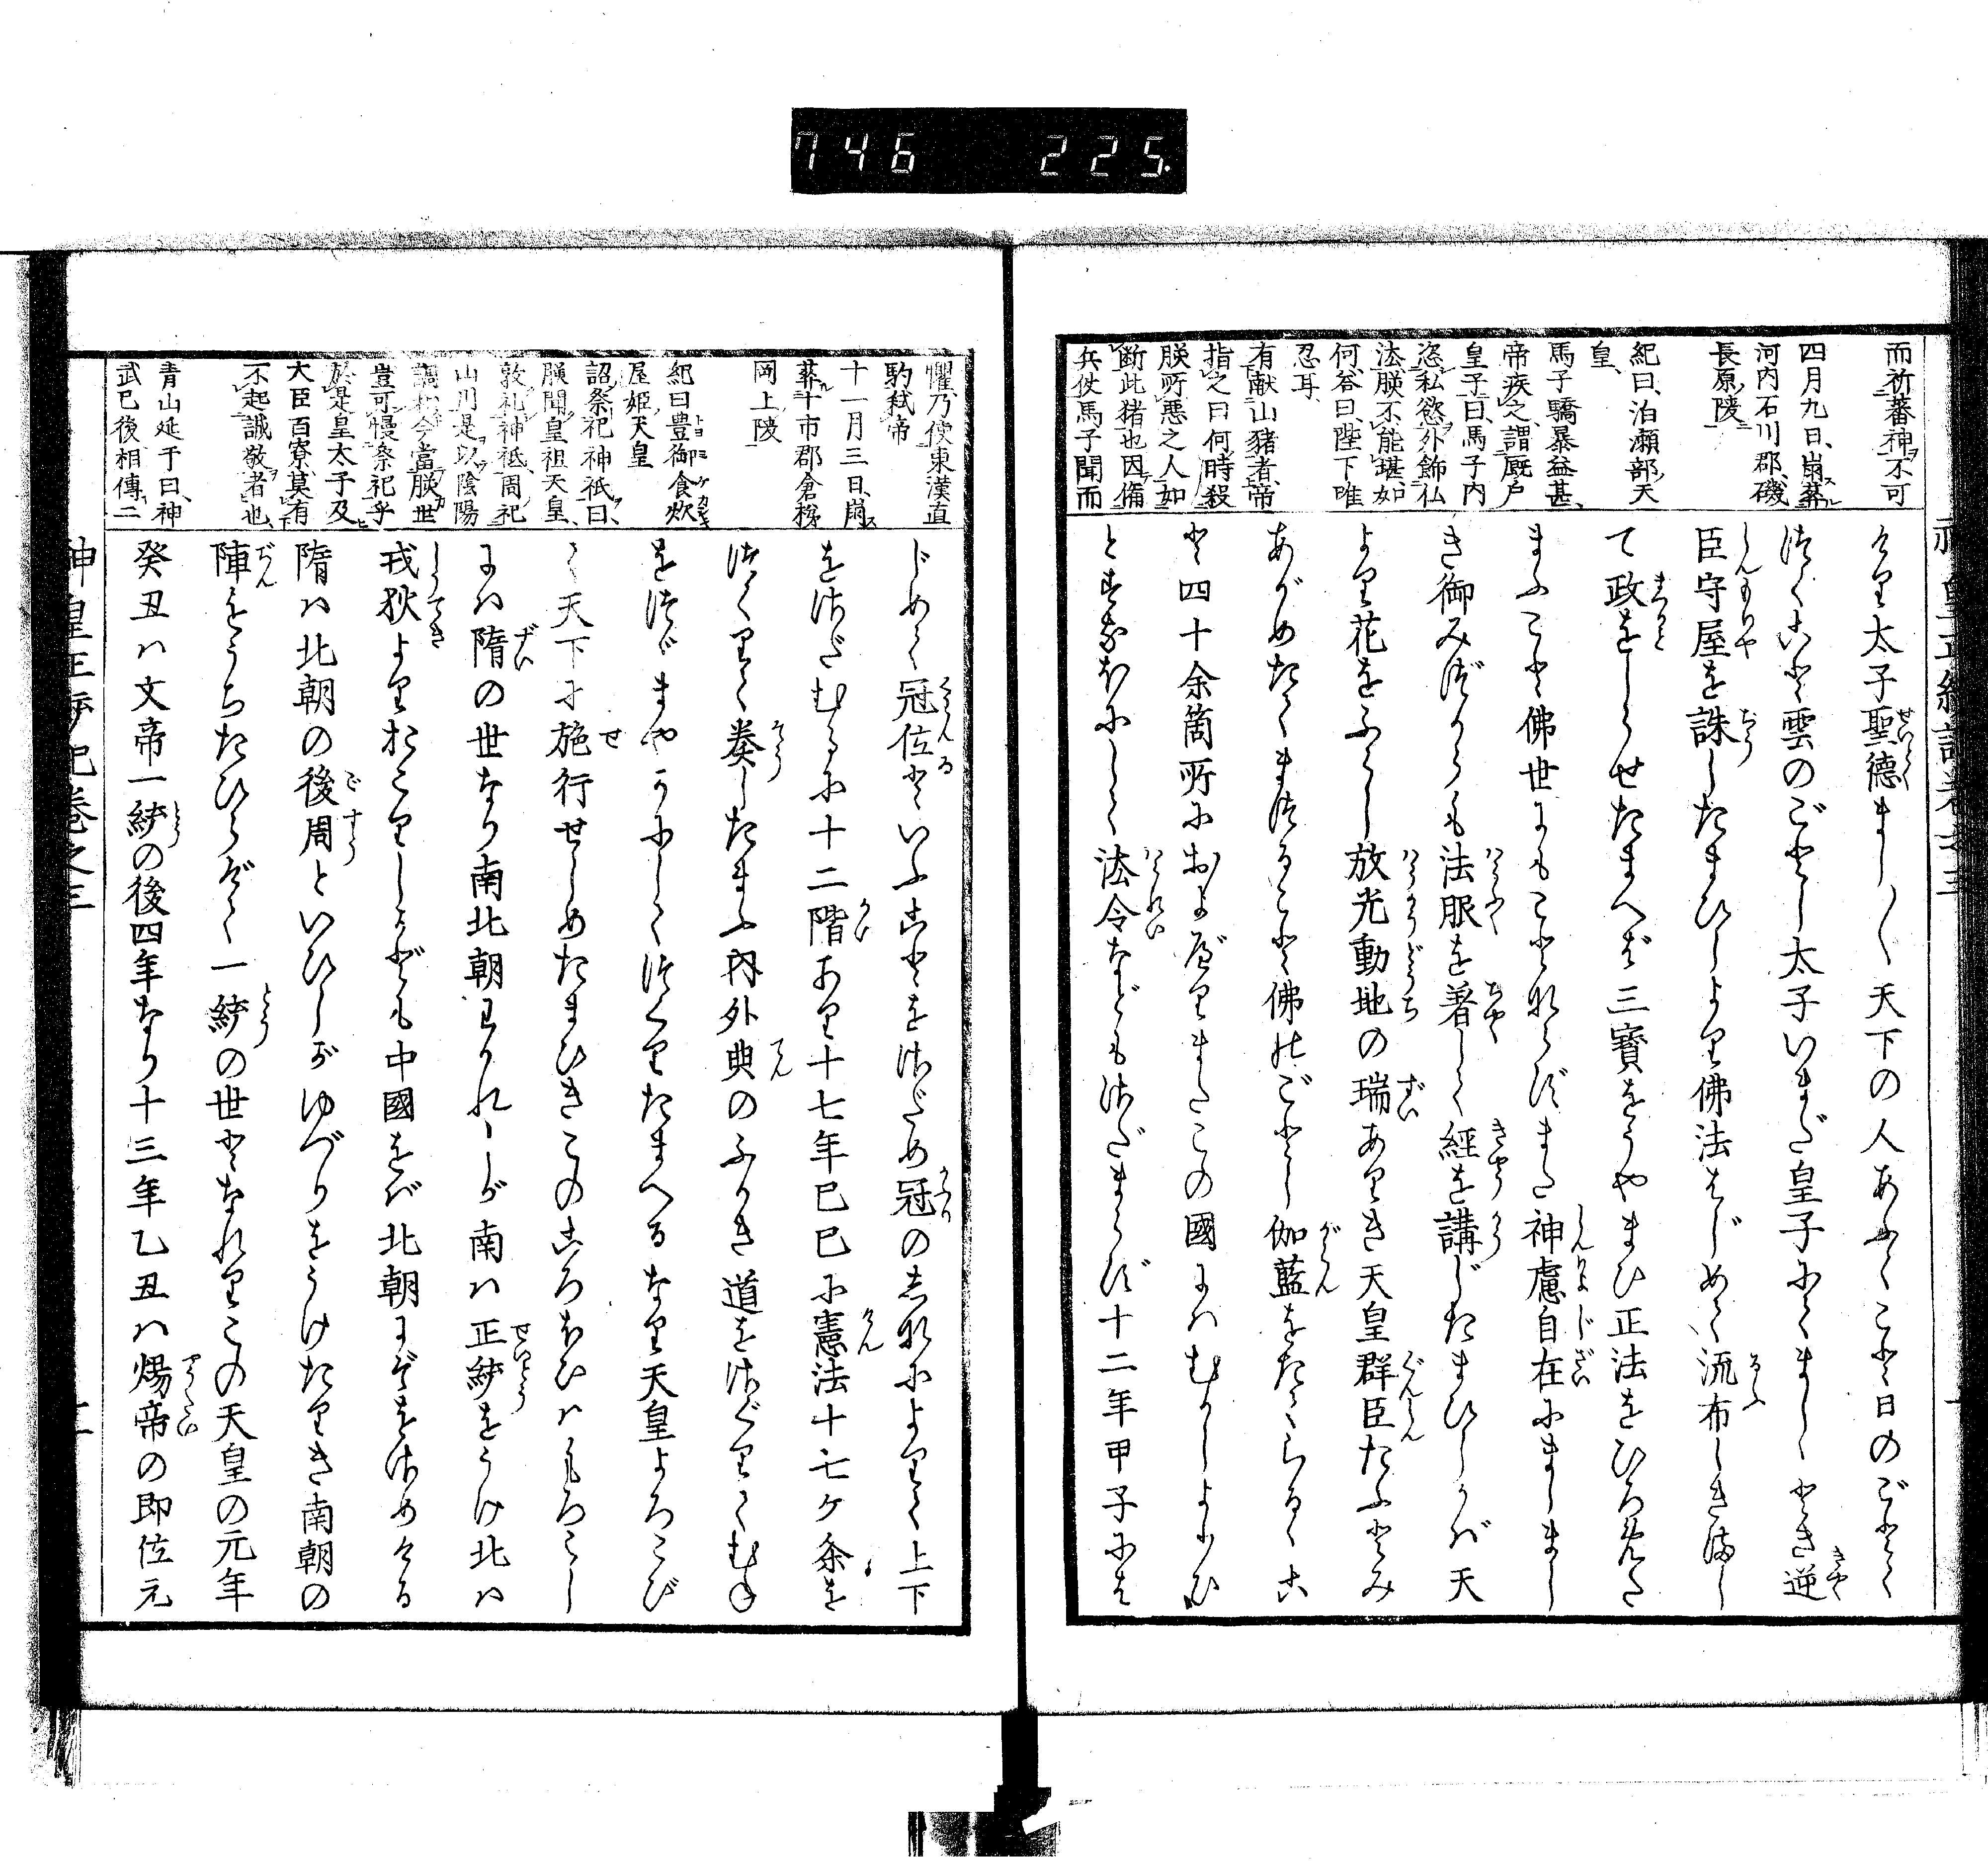 746 225.
而祈蕃神不可
四月九日、崩葬
河内石川郡、磯
長原陵
紀曰、泊瀬部天
皇、
馬子驕暴益甚、
帝疾之、謂厩戸
皇子曰、馬子内
恣私慾外飾仏
法、朕不能堪、如
何、荅曰、陛下唯
忍耳、
有献山猪者、帝
指之曰何時殺
朕所悪之人如
断此猪也因備
兵仗馬子聞而
けり太子聖德まし〱て天下の人あふくこと日のごとく
つくこと雲のごとし太子いまだ皇子にてましゝとき逆
臣守屋を誅したまひしより佛法はじめて流布しき満し
て政をしらせたまへば三寶をうやまひ正法をひろめた
まふこと佛世にもことならずまた神慮自在にましまし
き御みづからも法服を著して經を講じたまひしかば天
より花をふらし放光動地の瑞ありき天皇群臣たふとみ
あがめたてまつること佛のごとし伽藍をたてらるゝこ
と四十余箇所におよべりまたこの國にはむかしよりひ
とすなほにして法令などもさだまらず十二年甲子には
懼乃使東漢直
駒弑帝
十一月三日、崩
葬十市郡倉梯
岡上陵
紀曰豊御食炊
屋姫天皇
詔祭祀神祇曰、
朕聞皇祖天皇、
敦礼神祇、周祀
山川是以陰陽
調和今當朕世
豈可慢祭祀乎
於是皇太子及
大臣百寮莫有
不起誠敬者也、
青山延于曰、神
武已後相傳二
じめて冠位といふことをさだめ冠のしなによりて上下
をさだむるに十二階あり十七年己巳に憲法十七ケ条を
つくりて奏したまふ内外典のふかき道をさぐりてむね
をつゞまやかにしてつくりたまへるなり天皇よろこび
て天下に施行せしめたまひきこのころほひはもろこし
には隋の世なり南北朝わかれしが南は正統をうけ北は
戎狄よりおこりしかども中國をば北朝にぞをさめける
隋は北朝の後周といひしがゆづりをうけたりき南朝の
陣をうちたひらげて一統の世となれりこの天皇の元年
癸丑は文帝一統の後四年なり十三年乙丑は煬帝の即位元
神皇正統記巻之三
二